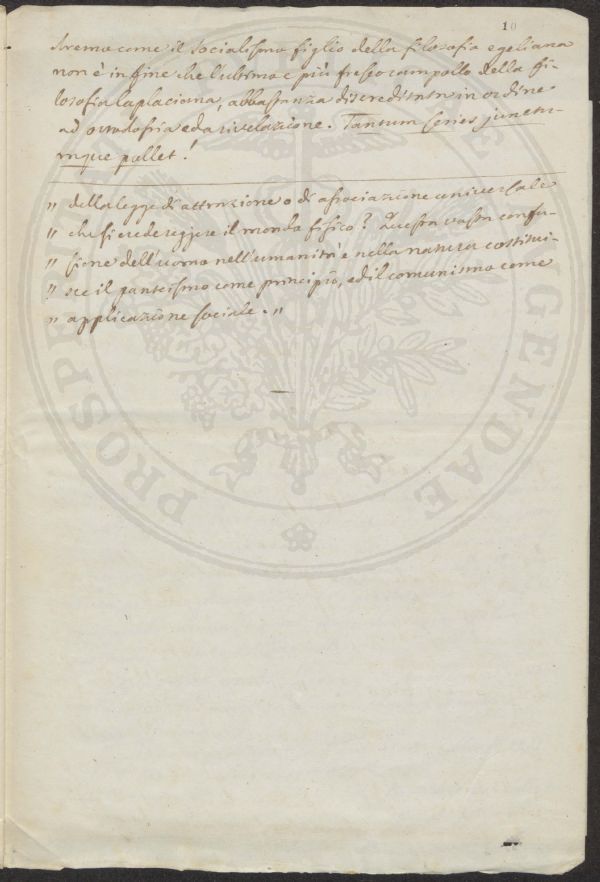 10
dremo come il socialismo figlio della filosofia egeliana
non è in fine che l'ultimo e più fresco rampollo della fi-
losofia laplaciana, abbastanza discreditata in ordine
ad ortodossia ed a rivelazione. Tantum series junctu-
raque pollet!
„ della legge di attrazione o di associazione universale
„ che si crede reggere il mondo fisico? Questa vasta confu-
„ sione dell'uomo nell'umanità e nella natura costitui-
„ sce il panteismo come principio, ed il comunismo come
„ applicazione sociale. „
PROSPE
GENDAE